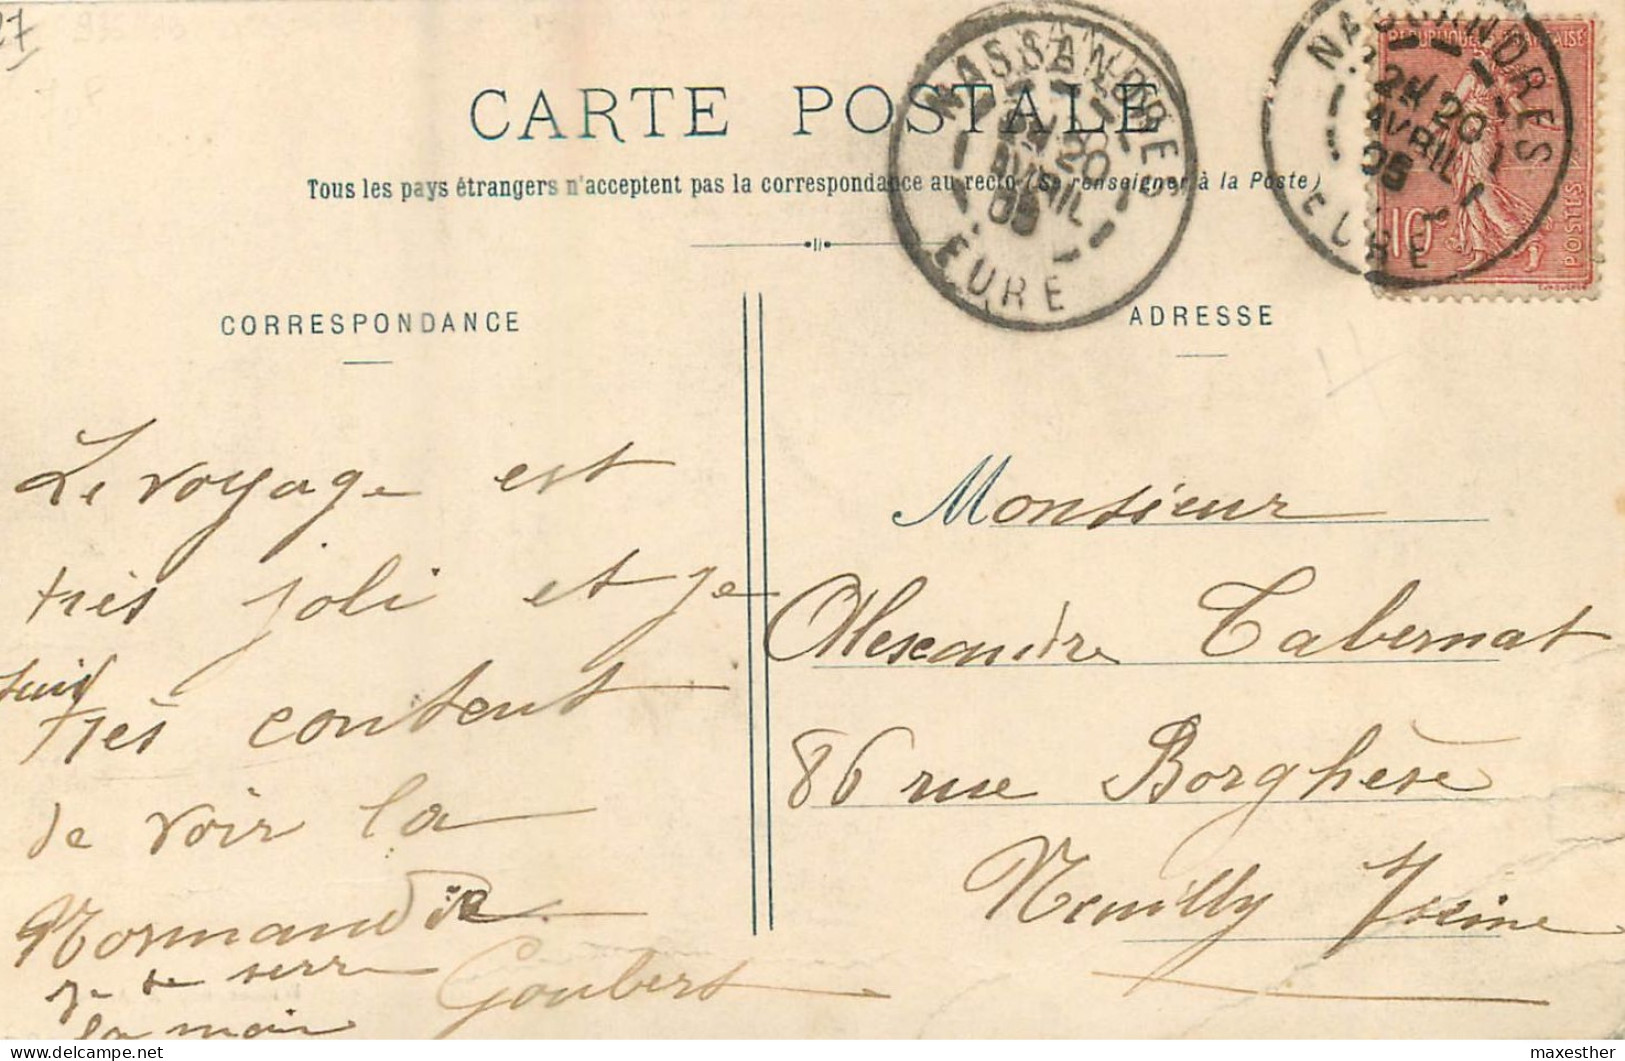 27
CARTE POSTALE
Tous les pays étrangers n'acceptent pas la correspondance au recto (Se renseigner à la Poste)
NASSANDRES
20
AVRIL
05
EURE
NASSANDRES
20
AVRIL
05
EURE
REPUBLIQUE FRANÇAISE
10c
POSTES
CORRESPONDANCE
ADRESSE
Le voyage est
très joli et je
suis
très content
de voir la
Normandie
je te serre
la main
Goubert
Monsieur
Alexandre Tabernat
86 rue Borghèse
Neuilly s/seine
delcampe.net
maxesther